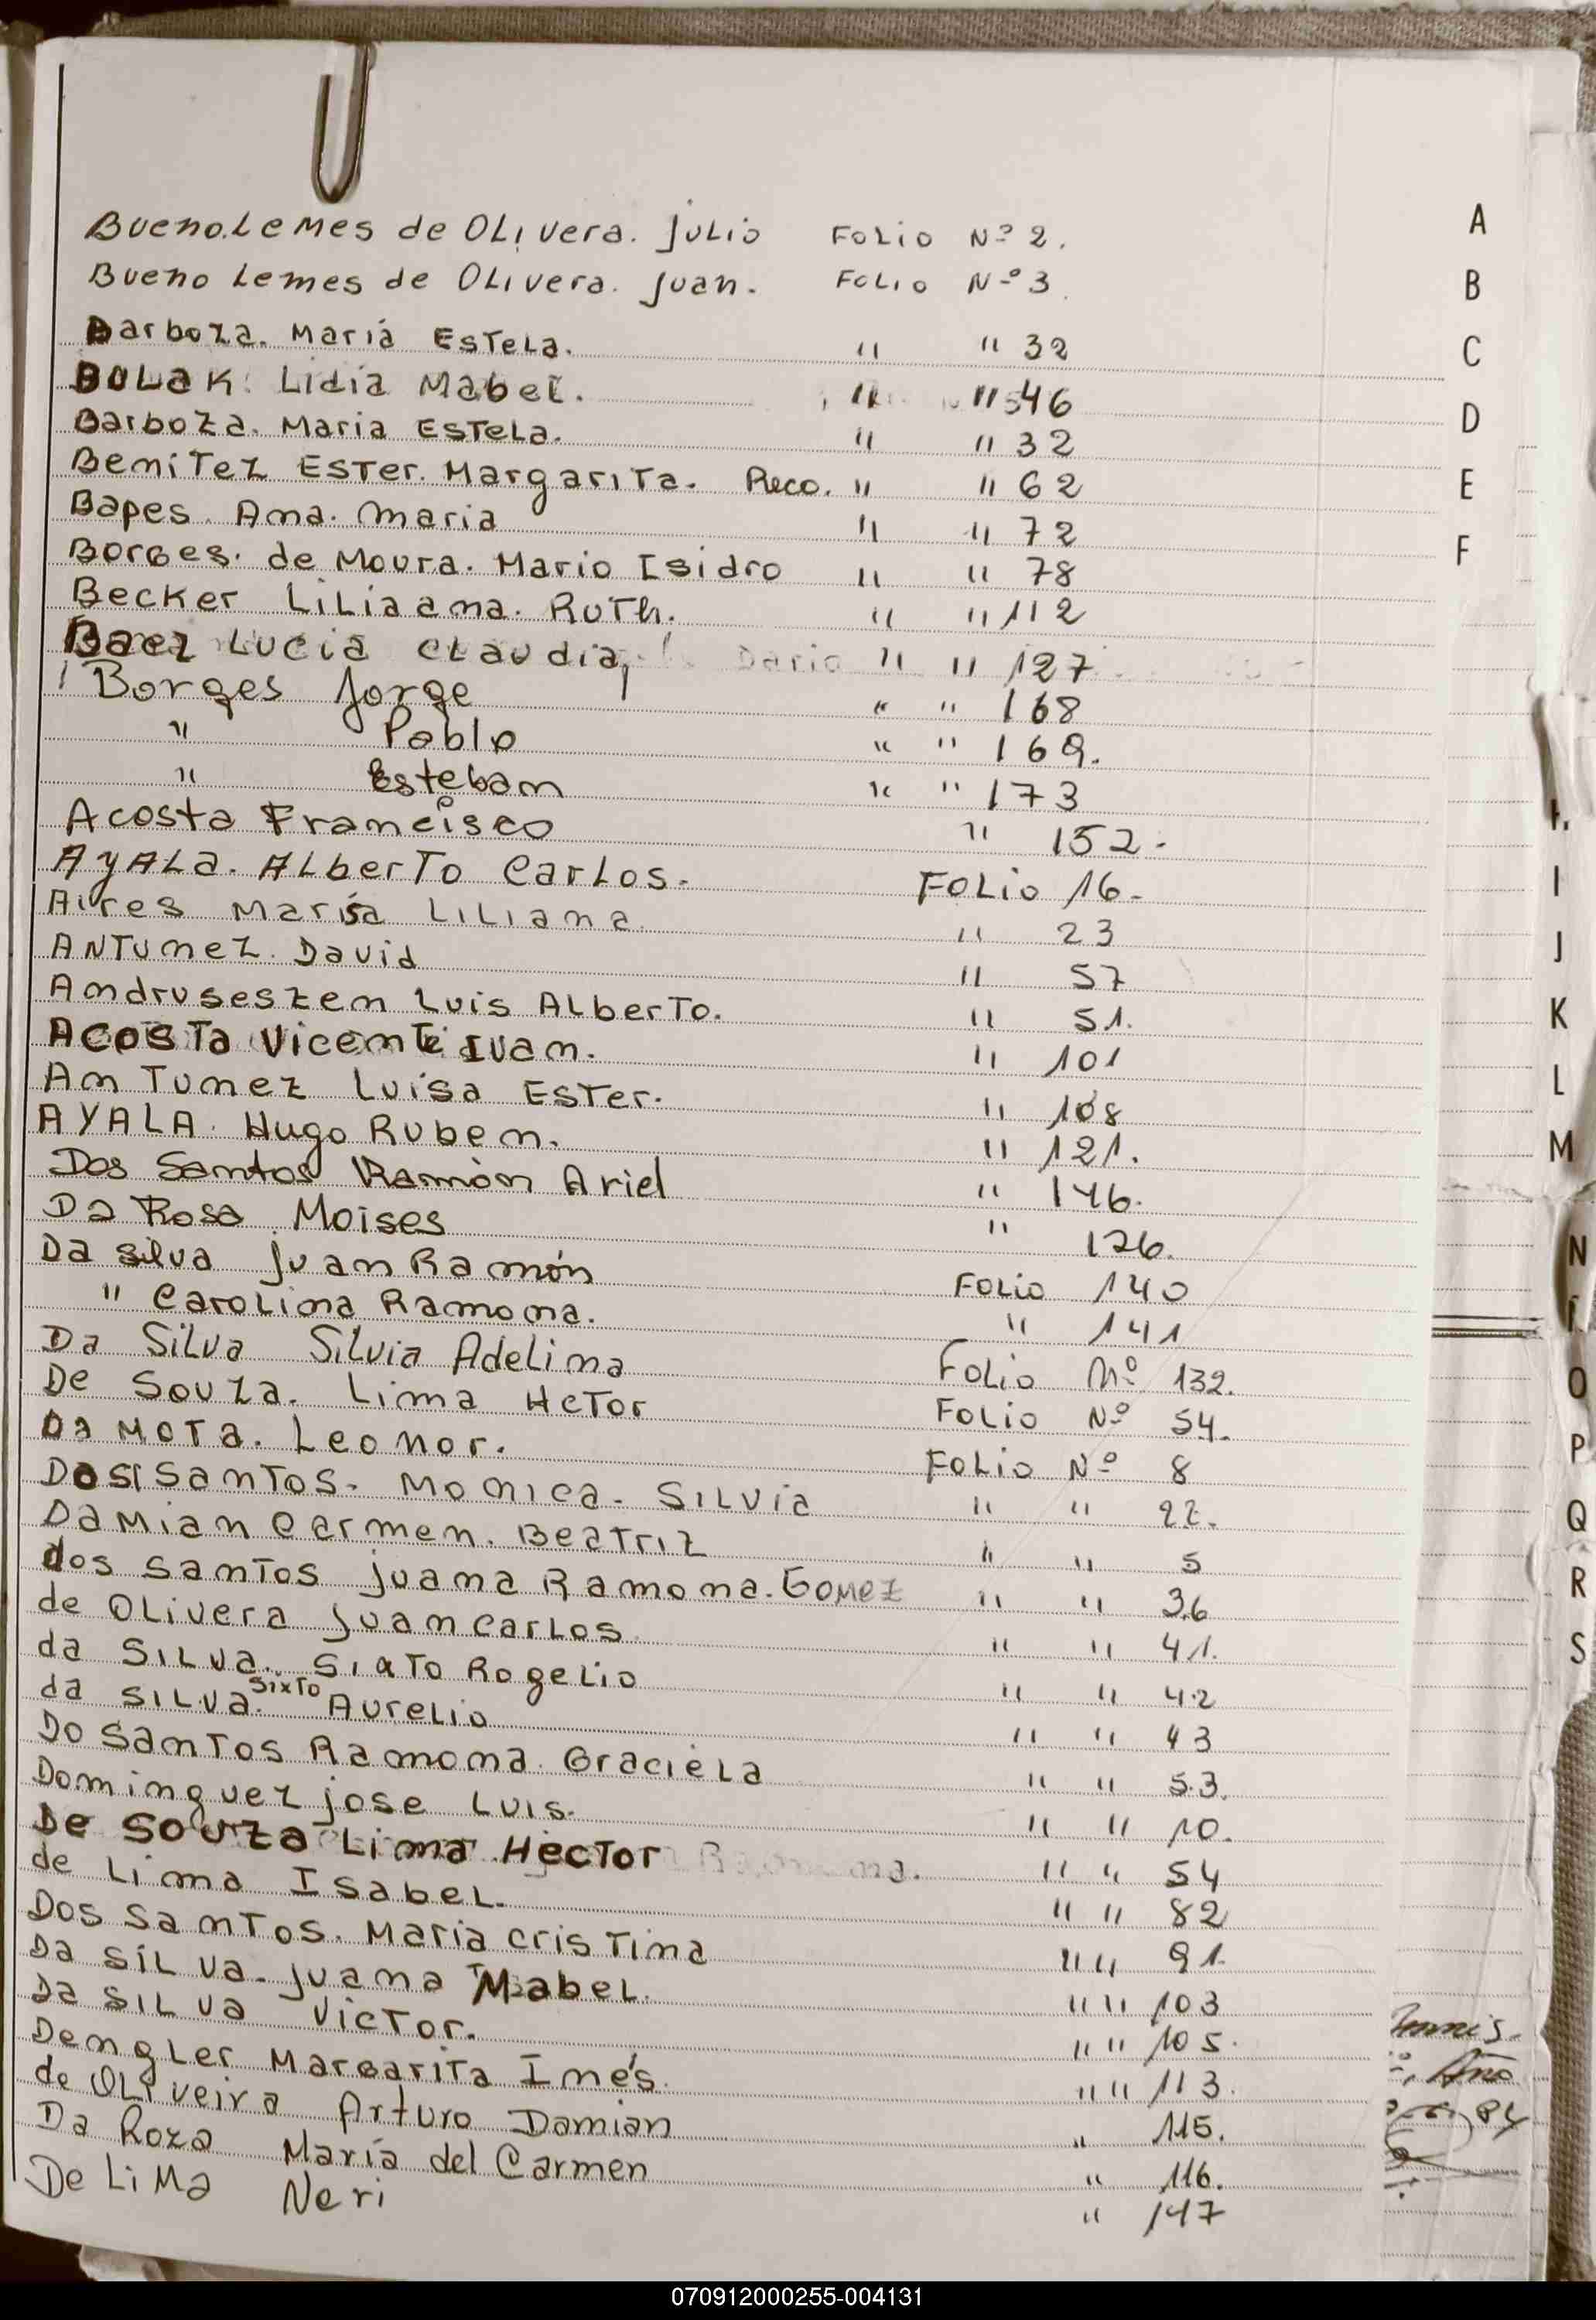 Bueno Lemes de Olivera. Julio Folio Nº 2.
Bueno Lemes de Olivera. Juan. Folio Nº 3.
Barboza. María Estela. " " 32
Bolak. Lidia Mabel. " " 46
Barboza. Maria Estela. " " 32
Benitez Ester. Margarita. Reco. " " 62
Bapes. Ana. Maria " " 72
Borges. de Moura. Mario Isidro " " 78
Becker Liliaana. Ruth. " " 112
Baez Lucia Claudia, " " 127
Borges Jorge " " 168
" Pablo " " 169.
" Esteban " " 173
Acosta Francisco " 152.
Ayala. Alberto Carlos. Folio 16.
Aires María Liliana. " 23
Antunez. David " 57
Andrusesten Luis Alberto. " 51.
Acosta Vicente Ivan. " 101
Antunez Luisa Ester. " 108
AYALA. Hugo Ruben. " 121.
Dos Santos Ramón Ariel " 146.
Da Rosa Moises " 126.
Da Silva Juan Ramón Folio 140
" Carolina Ramona. " 141
Da Silva Silvia Adelina Folio Nº 132.
De Souza. Lima Hetor Folio Nº 54.
Da Mota. Leonor. Folio Nº 8
Dos Santos. Monica. Silvia " " 22.
Damian Carmen. Beatriz " " 5
dos Santos Juana Ramona. Gomez " " 36
de Olivera Juan Carlos " " 41.
da Silva. Sixto Rogelio " " 42
da Silva. Sixto Aurelio " " 43
Do Santos Ramona. Graciela " " 53.
Dominguez jose Luis. " " 10.
De Souza Lima Hector " " 54
de Lima Isabel. " " 82
Dos Santos. Maria Cristina " " 91.
Da Silva. Juana Mabel. " " 103
Da Silva Victor. " " 105.
Dengler Margarita Inés. " " 113.
de Oliveira Arturo Damian " 115.
Da Roza María del Carmen " 116.
De Lima Neri " 147
A
B
C
D
E
F
I
J
K
L
M
N
O
P
Q
R
S
Año
84
070912000255-004131